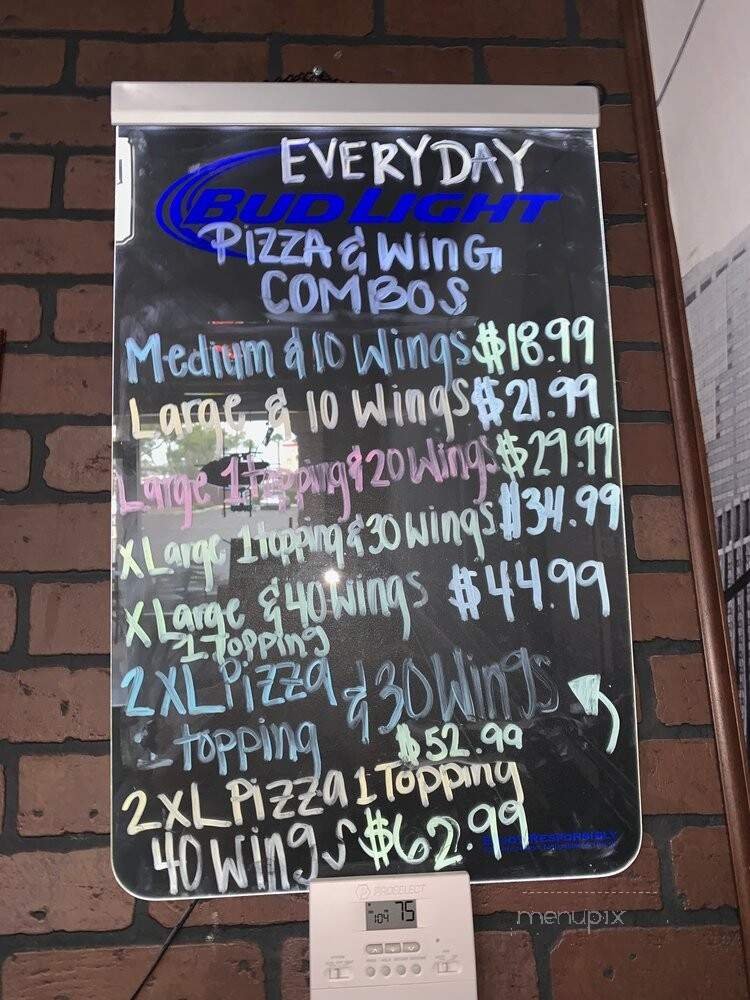 EVERYDAY
BUD LIGHT
PIZZA & WING
COMBOS
Medium & 10 Wings $18.99
Large & 10 Wings $21.99
Large 1 topping & 20 Wings $29.99
XLarge 1 topping & 30 Wings $34.99
XLarge & 40 Wings $44.99
1 Topping
2 XL Pizza & 30 Wings
1 topping $52.99
2 XL Pizza 1 Topping
40 Wings $62.99
PROSELECT
75
menupix